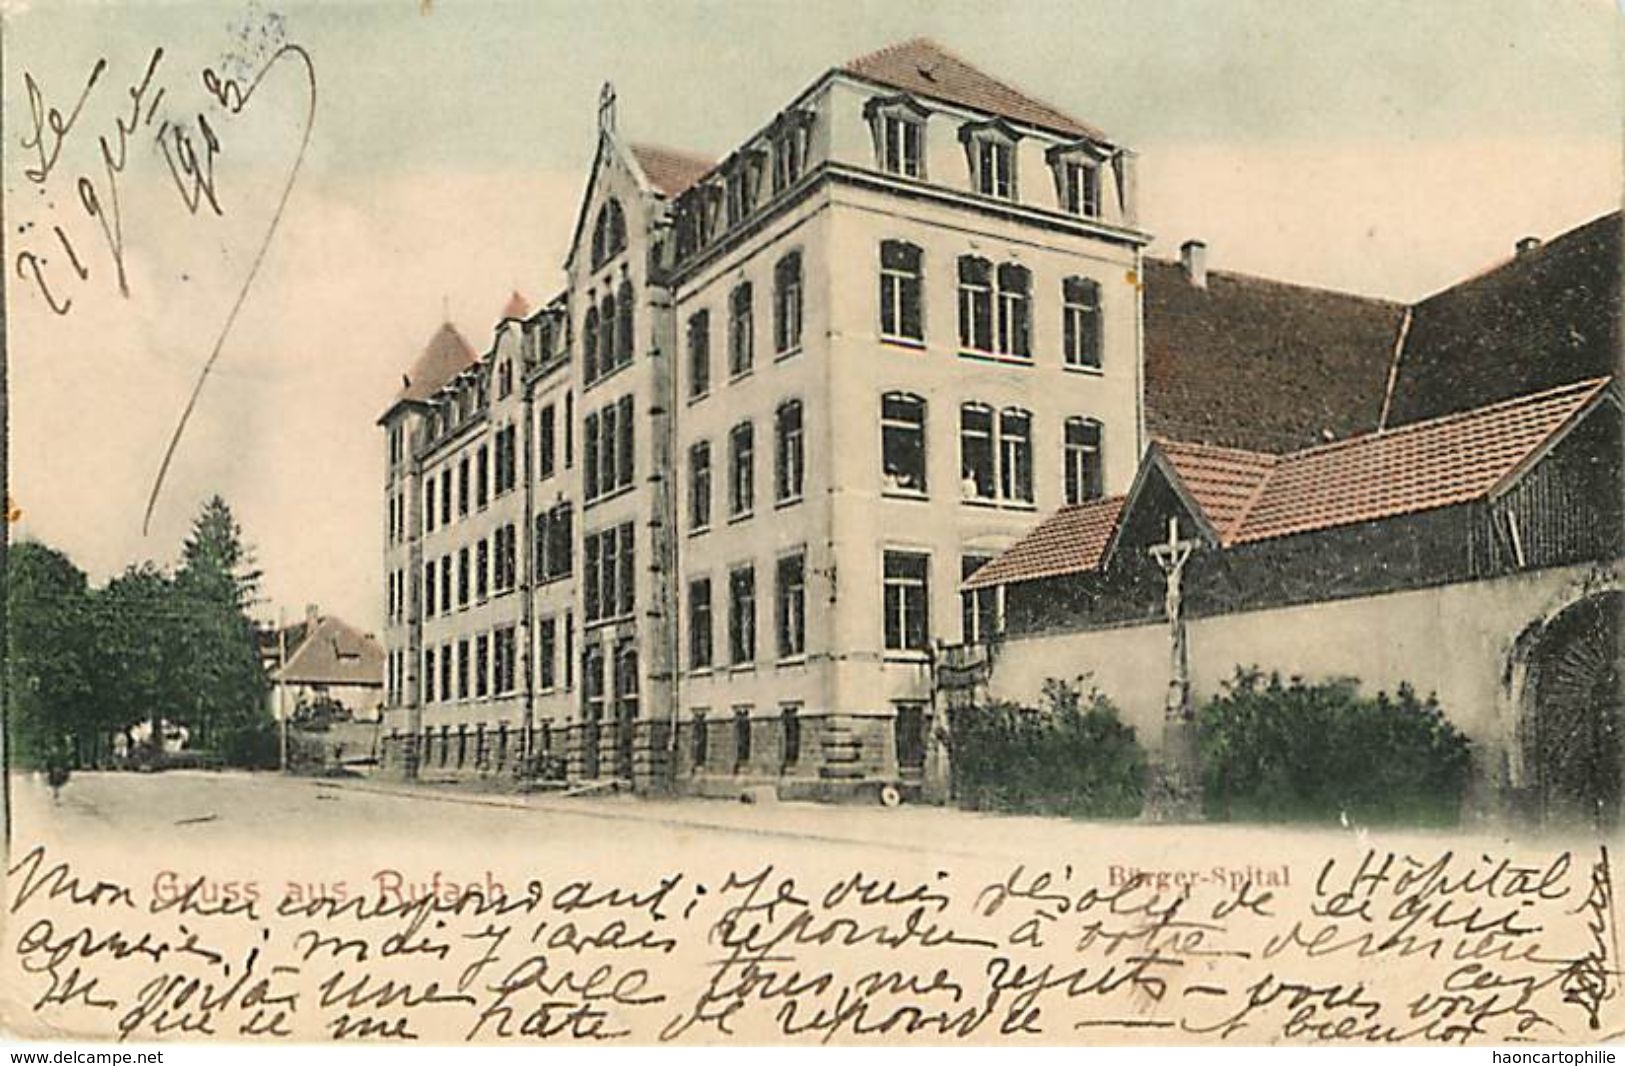 Le
21 gbre
1903
Gruss aus Rufach
Bürger-Spital (Hôpital
Mon cher correspondant; Je suis désolé de ce qui
arrive; mais j'avais répondu à votre dernière
carte
En voilà une avec tous mes regrets - vous voyez
que je me hâte de répondre — A bientôt -
www.delcampe.net
haoncartophilie